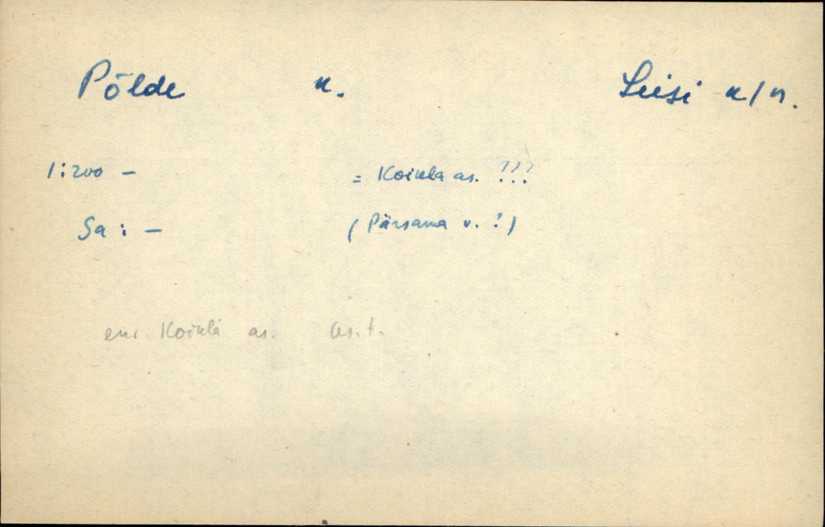 Põlde k. Leisi k/n.
1:200 — = Koikla as. ???
Sa: — (Pärsama v. ?)
end. Koikla as. as.t.